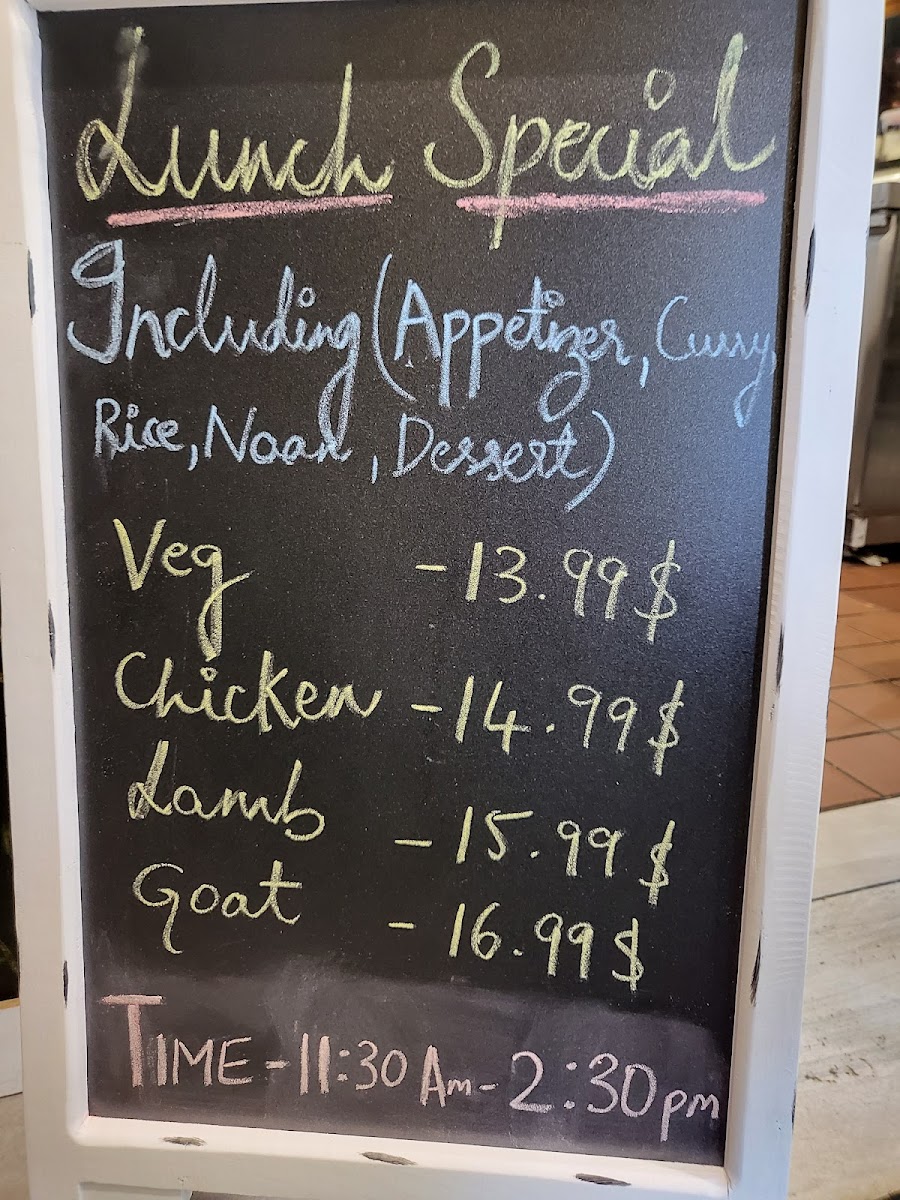 Lunch Special
Including (Appetizer, Curry,
Rice, Naan, Dessert)
Veg - 13.99 $
Chicken - 14.99 $
Lamb - 15.99 $
Goat - 16.99 $
TIME - 11:30 Am - 2:30 pm